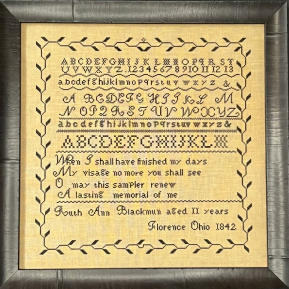 ABCDEFGHIJKLMNOPQRST
UVWXYZ.12345678910111213
abcdefghijklmnopqrstuvwxyz&
ABCDEFGHIJKLM
NOPQRSTUVWXYZ
abcdefghijklmnopqrstuvwxyz&
ABCDEFGHIJKLM
When I shall have finished my days
My visage no more you shall see
O may this sampler renew
A lasting memorial of me
Ruth Ann Blackmun aged 11 years
Florence Ohio 1842